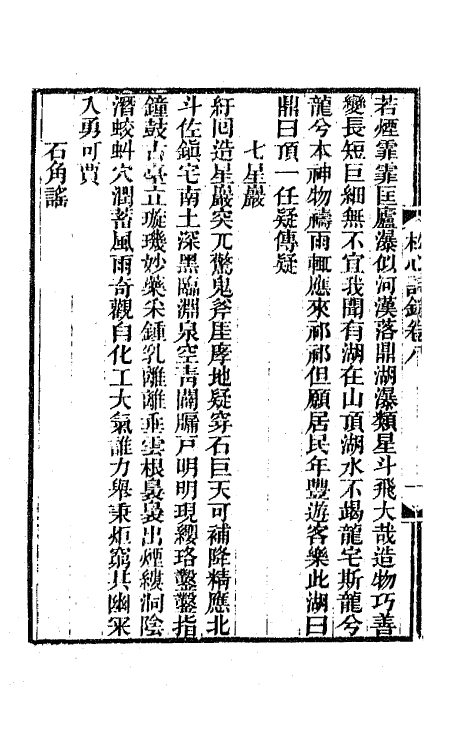 松心詩錄卷八
若煙霏霏匡廬瀑似河漢落鼎湖瀑類星斗飛大哉造物巧善
變長短巨細無不宜我聞有湖在山頂湖水不竭龍宅斯龍兮
龍兮本神物禱雨輒應來祁祁但願居民年豐遊客樂此湖曰
鼎曰頂一任疑傳疑
七星巖
紆回造星巖突兀驚鬼斧崖摩地疑穿石巨天可補降精應北
斗佐鎮宅南土深黑臨淵泉空青闢牖戶明明現纓珞鑿鑿指
鐘鼓古臺立璇璣妙藥采鍾乳離離垂雲根裊裊出煙縷洞陰
潛蛟蚪穴潤蓄風雨奇觀自化工大氣誰力舉秉炬窮其幽宋
人勇可賈
石角謠